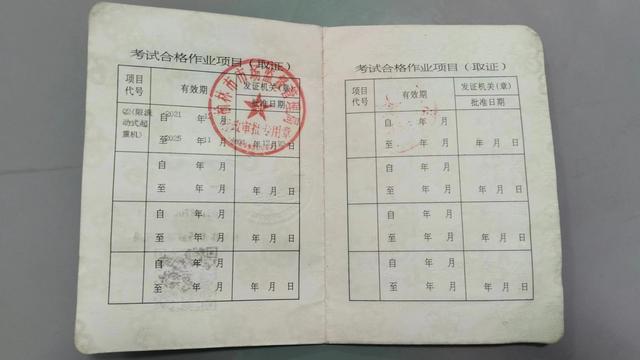 考试合格作业项目（取证）
项目代号
有效期
发证机关(章)
批准日期
Q2(限流动式起重机)
自 2021 年 12 月
至 2025 年 11 月
审批专用章
自 年 月
至 年 月
年 月 日
自 年 月
至 年 月
年 月 日
自 年 月
至 年 月
年 月 日
考试合格作业项目（取证）
项目代号
有效期
发证机关(章)
批准日期
自 年 月
至 年 月
年 月 日
自 年 月
至 年 月
年 月 日
自 年 月
至 年 月
年 月 日
自 年 月
至 年 月
年 月 日